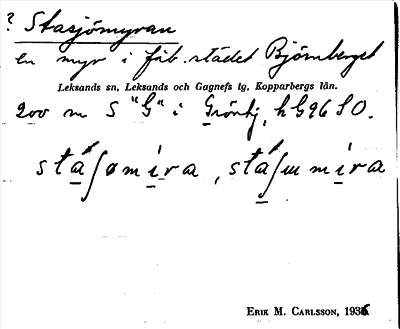 ? Stasjömyran
en myr i fäb.stället Björnberget
Leksands sn, Leksands och Gagnefs tg, Kopparbergs län.
200 m S "G" i Gröntj, h G96 SO.
stáʃømira, stáʃɯmira
Erik M. Carlsson, 1935